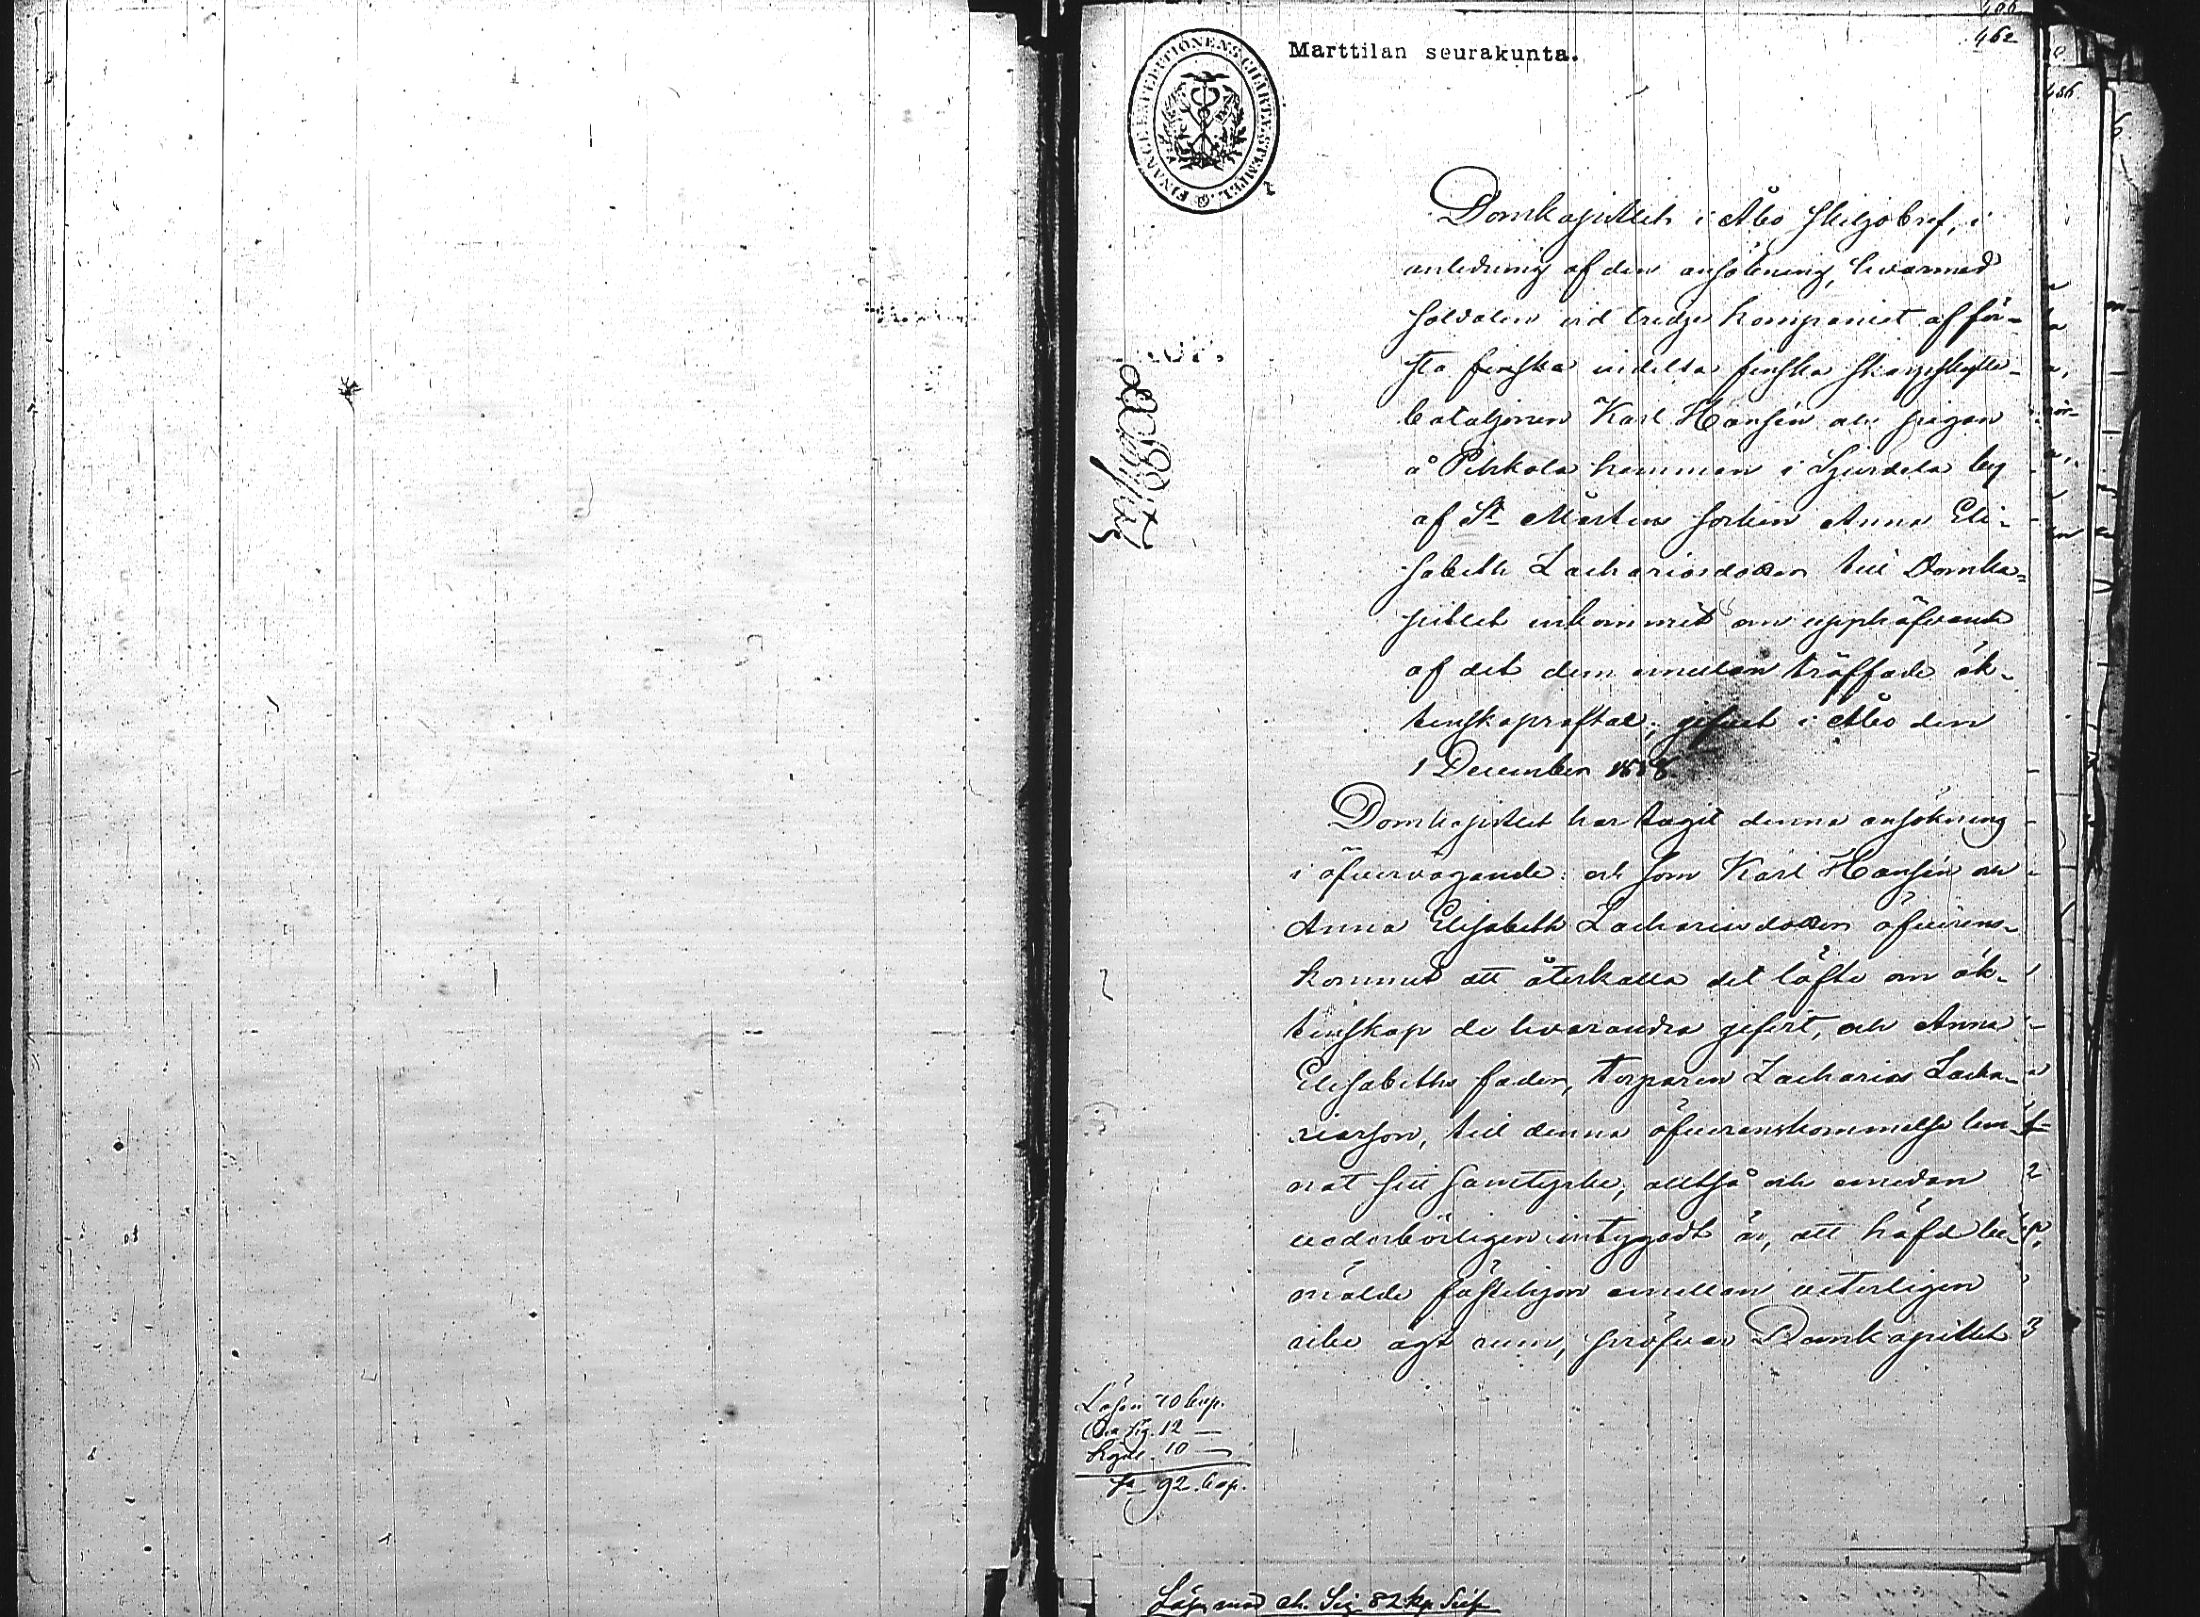 462
Marttilan seurakunta.
FINANCE EXPEDITIONENS CHARTÆ STEMPEL.
Domkapitlets i Åbo skiljobref, i
anledning af den ansökning, hvarmed
soldaten vid tredje kompaniet af för-
sta finska indelta finska skarpskytte-
bataljonen Karl Hansén och pigan
å Pihkola hemman i Sjurdela by
af St Mårtens socken Anna Eli-
sabeth Zachariædotter till Domka-
pitlet inkommit om upphäfvande
af det dem emellan träffade äk-
tenskapsaftal; gifvet i Åbo den
1 December 1858.
Domkapitlet har tagit denna ansökning
i öfvervägande: och som Karl Hansén och
Anna Elisabeth Zachariædotter öfverens-
kommit att återkalla det löfte om äk-
tenskap de hvarandra gifvit, och Anna
Elisabeths fader, torparen Zacharias Zacha-
riasson, till denna öfverenskommelse lem-
nat sitt samtycke; alltså och emedan
vederbörligen intygadt är, att häfd be-
mälde fästehjon emellan veterligen
icke ägt rum, pröfvar Domkapitlet
Lösen 70 kop.
Cha Sig. 12 —
10 —
Sa 92 kop.
Lösen med ch. Sig 82 kop Silf